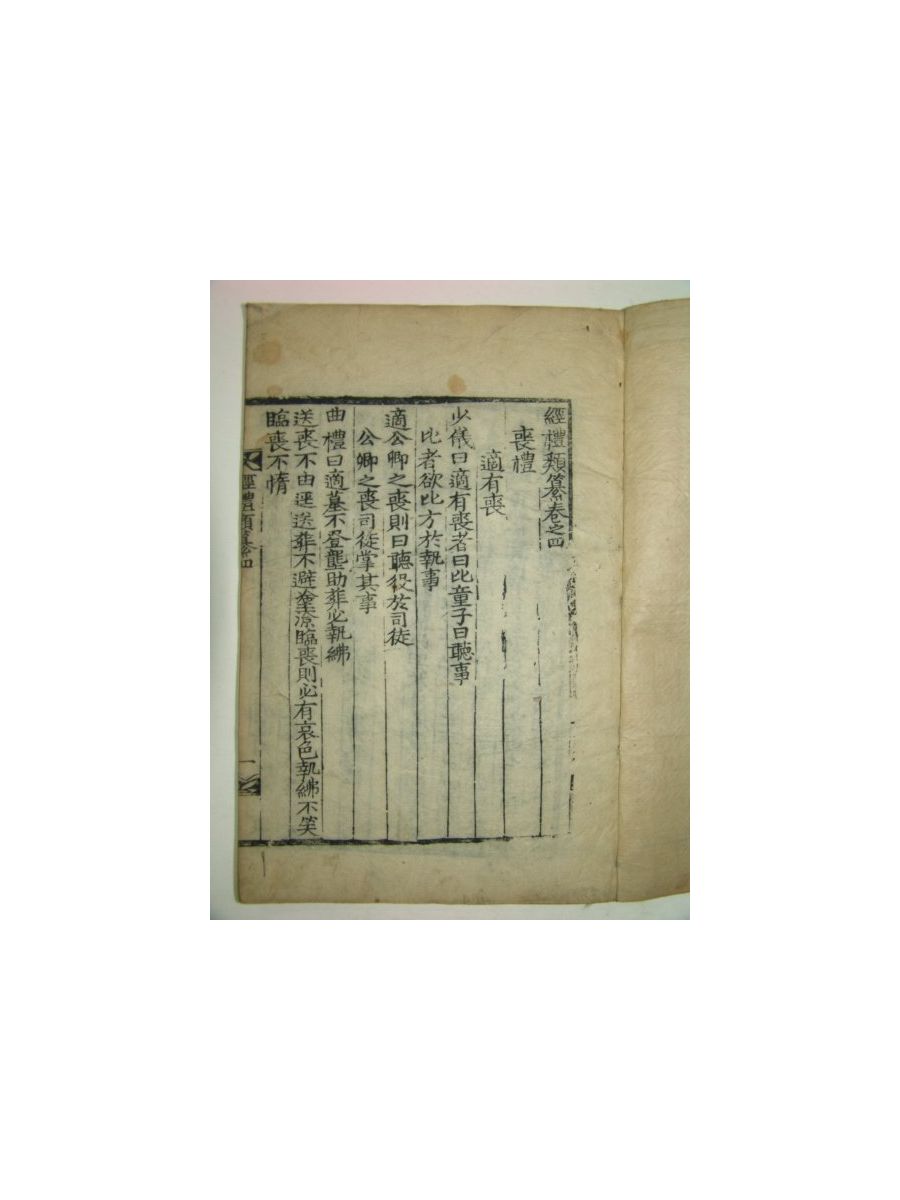 經禮類纂卷之四
喪禮
適有喪
少儀曰適有喪者曰比童子曰聽事
比者欲比方於執事
適公卿之喪則曰聽役於司徒
公卿之喪司徒掌其事
曲禮曰適墓不登壟助葬必執紼
送喪不由逕送葬不避塗潦臨喪則必有哀色執紼不笑
臨喪不惰
經禮類纂四
一